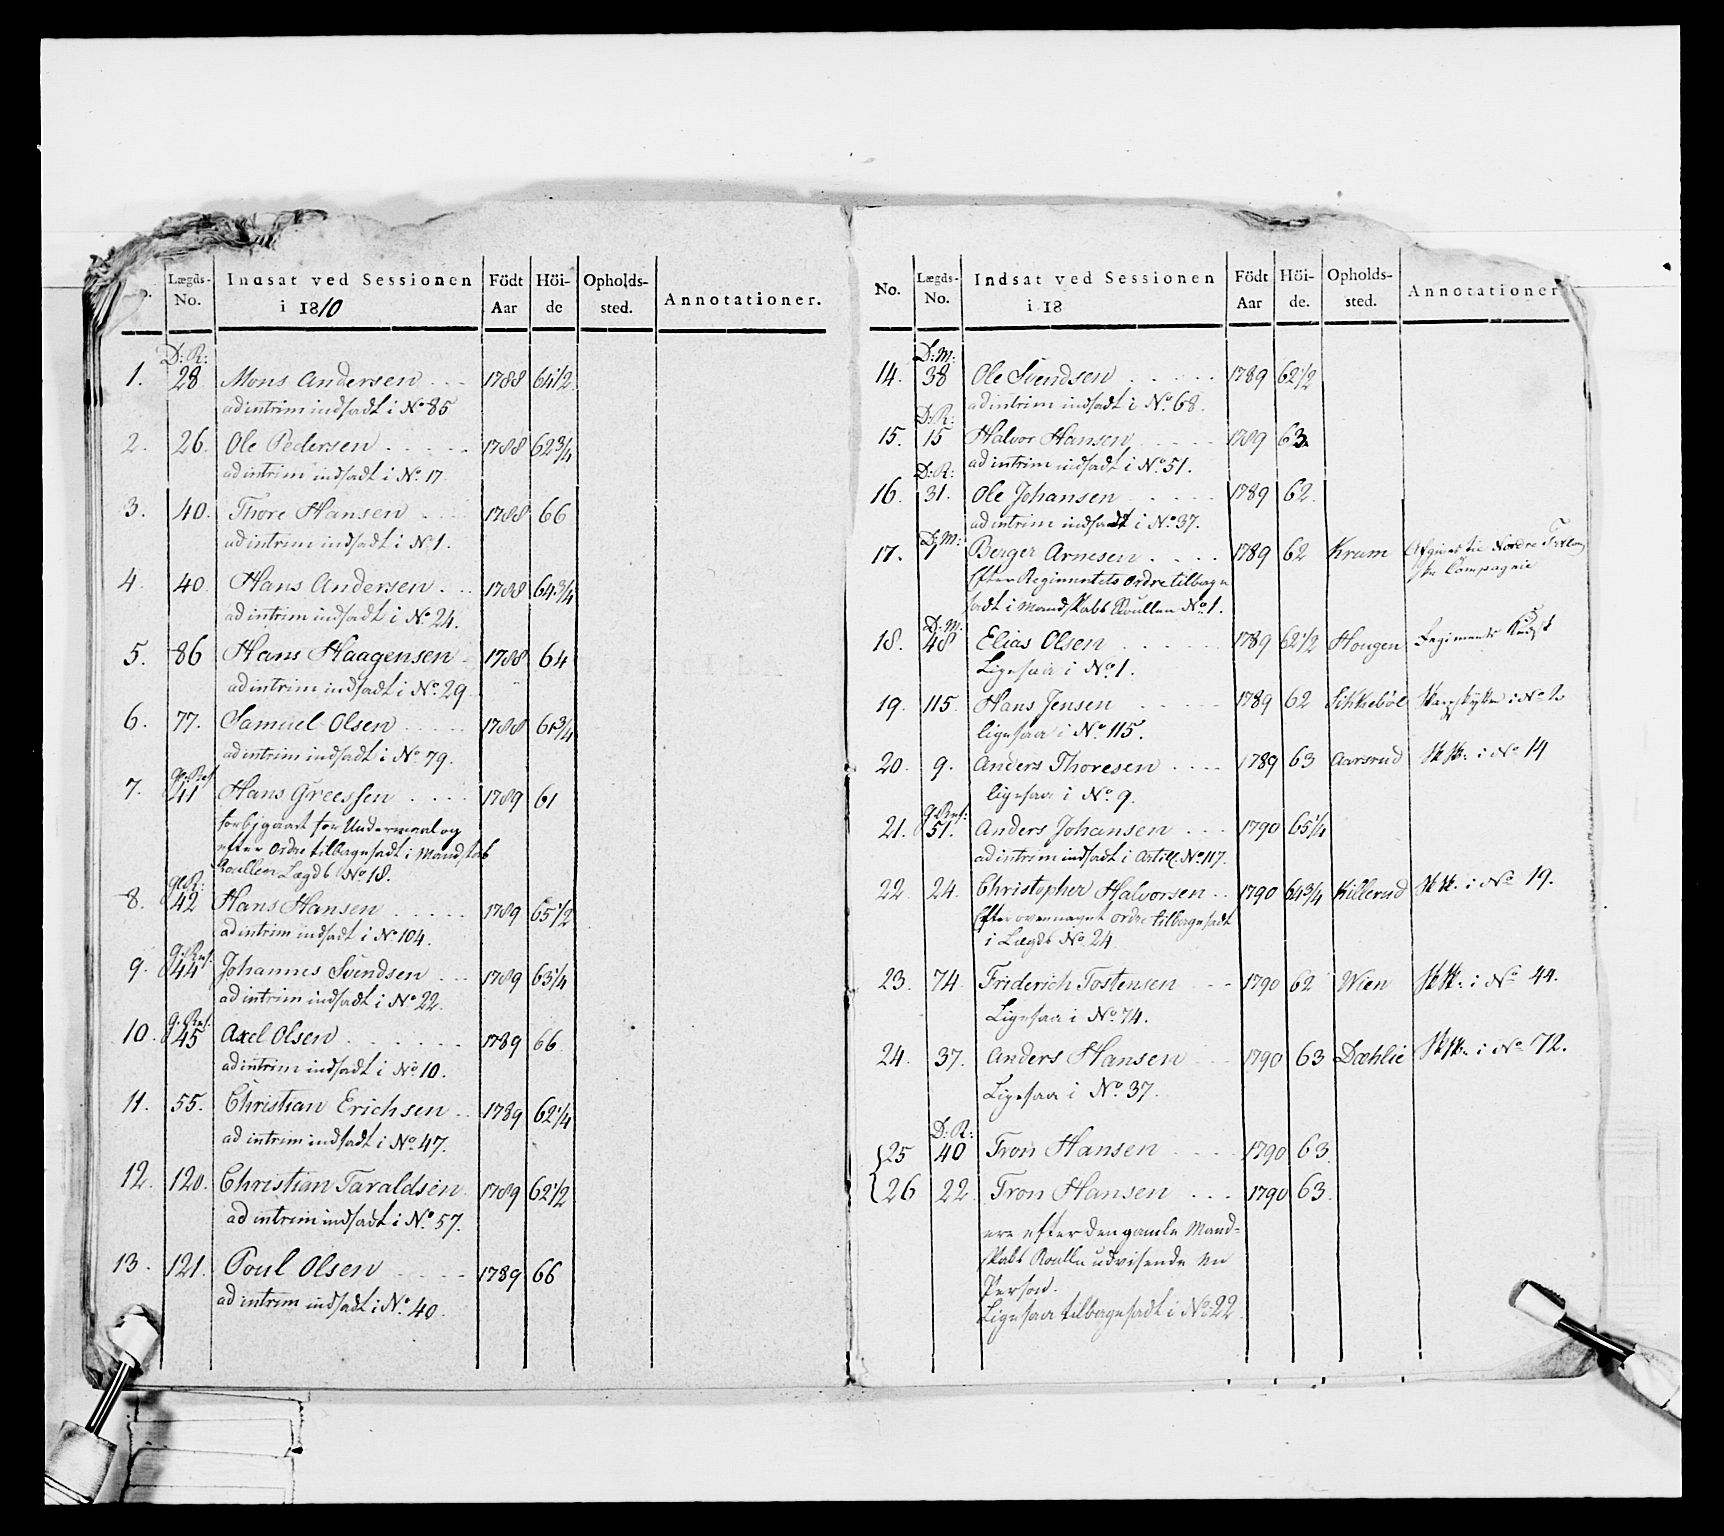 Lægds-No. Indsat ved Sessionen i 1810 Födt Aar Höi-de Opholds-sted. Annotationer.
D: R:
1. 28 Mons Andersen 1788 64 1/2
ad intrim indsadt i No 85
2. 26. Ole Pedersen 1788 62 3/4
ad intrim indsadt i No 17
3. 40. Thore Hansen 1788 66
ad intrim indsadt i No 1.
4. 40. Hans Andersen 1788 64 3/4
ad intrim indsadt i No. 24.
5. 86 Hans Haagensen 1788 64
ad intrim indsadt i No. 29
6. 77. Samuel Olsen 1788 61 3/4
ad intrim indsadt i No 79.
7. 41 Hans Greessen 1789 61
forbigaaet for Undermaal og
efter Ordre tilbagesadt i Mandskabs
Roullen Lægds No 18.
8. 42 Hans Hansen 1789 65 1/2
ad intrim indsadt i No 104.
9. 44 Johannes Svendsen 1789 63 1/4
ad intrim indsadt i No 22.
10. 45 Axel Olsen 1789 66
ad intrim indsadt i No 10.
11. 55. Christian Erichsen 1789 62 1/4
ad intrim indsadt i No 47.
12. 120. Christian Taraldsen 1789 62 1/2
ad intrim indsadt i No. 57.
13. 121. Poul Olsen 1789 66
ad intrim indsadt i No. 40.
No. Lægds-No. Indsat ved Sessionen i 18 Födt Aar Höi-de. Opholds-sted. Annotationer
D: M:
14. 38 Ole Svendsen 1789 62 1/2
ad intrim indsadt i No. 68.
D: R:
15. 15 Halvor Hansen 1789 63.
ad intrim indsadt i No. 51.
D: R:
16. 31. Ole Johansen 1789 62.
ad intrim indsadt i No. 37.
D: M:
17. 1 Berger Arnesen 1789 62 Kram Afgivet til Nordre
Compagnie
Efter Regimentets Ordre tilbage
sadt i Mandskabs Roullen No. 1.
D: M:
18. 48 Elias Olsen 1789 62 1/2 Hougen Regiments
Ligesaa i No 1.
19. 115. Hans Jensen 1789 62 Sikkebøl Skarpskytter i No 2
ligesaa i No. 115.
20. 9. Anders Thoresen 1789 63 Aarsrud Sk Sk: i No 14
ligesaa i No. 9.
21. 51. Anders Johansen 1790 65 1/4
ad intrim indsadt i Artill. No 117.
22 24. Christopher Halvorsen 1790 64 3/4 Killerud Sk Sk. i No 19.
Efter ovennævnt Ordre tilbagesadt
i Lægds No. 24
23. 74. Friderich Tostensen 1790 62 Wien Sk Sk: i No 44.
Ligesaa i No. 74.
24. 37. Anders Hansen 1790 63 Dæhlie Sk Sk. i No 72.
Ligesaa i No. 37.
D: R:
25 40 Tron Hansen 1790 63.
26 22. Tron Hansen 1790 63.
ere efter den gamle Mand-
skabs Roulle udvisende en
Person.
Ligesaa tilbagesadt i No: 22.